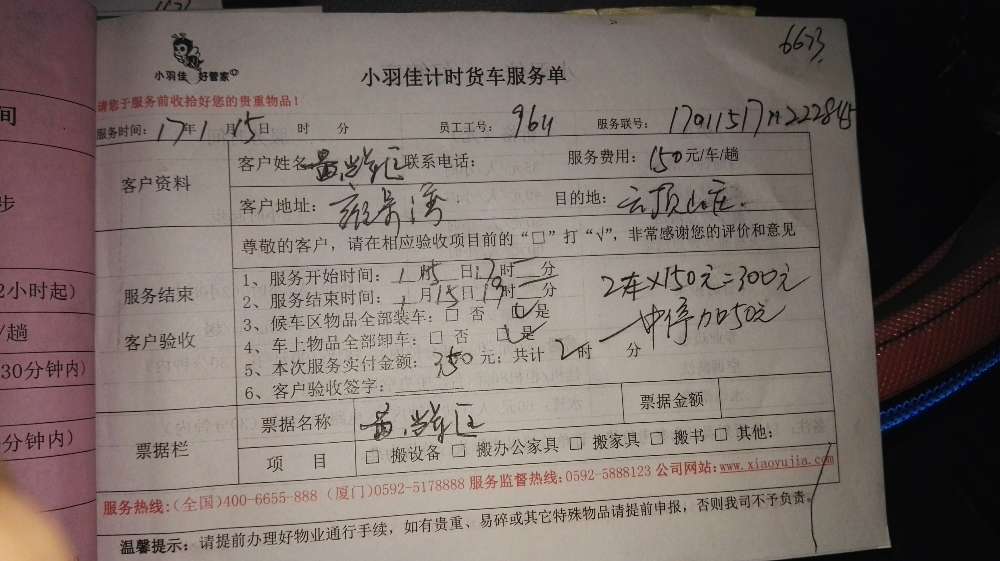 6673
小羽佳 好管家
小羽佳计时货车服务单
请您于服务前收拾好您的贵重物品！
服务时间：17年1月15日 时 分 员工工号：964 服务联号：
客户资料
客户姓名 联系电话： 服务费用：150元/车/趟
客户地址： 目的地：云顶山庄
服务结束
客户验收
尊敬的客户，请在相应验收项目前的“□”打“√”，非常感谢您的评价和意见
1、服务开始时间：1月15日17时 分
2、服务结束时间：1月15日19时 分
3、候车区物品全部装车：□ 否 ☑是
4、车上物品全部卸车：□ 否 ☑是
5、本次服务实付金额：350元；共计2时 分
6、客户验收签字：
2车×150元=300元
中停加50元
票据栏
票据名称
票据金额
项 目
□ 搬设备 □ 搬办公家具 □ 搬家具 □ 搬书 □ 其他：
服务热线：(全国)400-6655-888 (厦门)0592-5178888 服务监督热线：0592-5888123 公司网站：www.xiaoyujia.com
温馨提示：请提前办理好物业通行手续，如有贵重、易碎或其它特殊物品请提前申报，否则我司不予负责。
间
步
2小时起)
/趟
30分钟内)
分钟内)